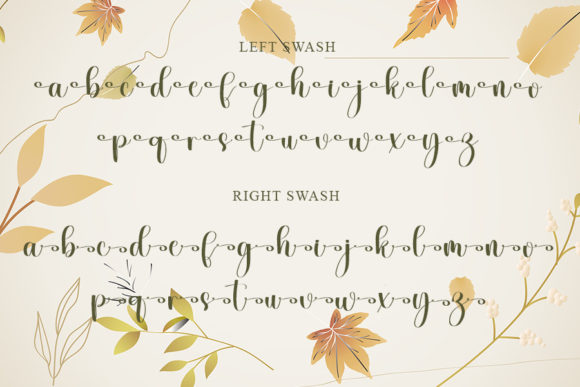 LEFT SWASH
abcdefghijklmno
pqrstuvwxyz
RIGHT SWASH
abcdefghijklmno
pqrstuvwxyz